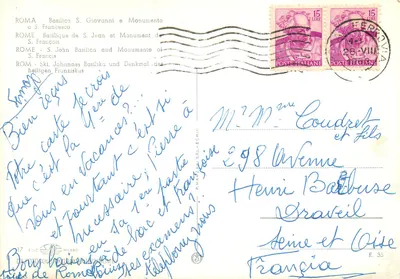 ROMA - Basilica S. Giovanni e Monumento
a S. Francesco
ROME - Basilique de S. Jean et Monument de
S. Francois
ROME - S. Jean Basilica and Monument of
S. Francis
ROM - Skt. Johannes Basilika und Denkmal des
Heiligen Franziskus
15
15
FERROVIA
Bien reçue
votre carte. Je crois
que c'est la 4ème de
vous en vacances?...
et pourtant c'est si
nécessaire; Pierre à
en sa 1er partie
de bac et Françoise
ses examens?
téléphonez nous
Bons baisers
de Rome
Mr Mme Coudret
et fils
298 Avenue
Henri Barbusse
Draveil
Seine et Oise
Françia
E. 55